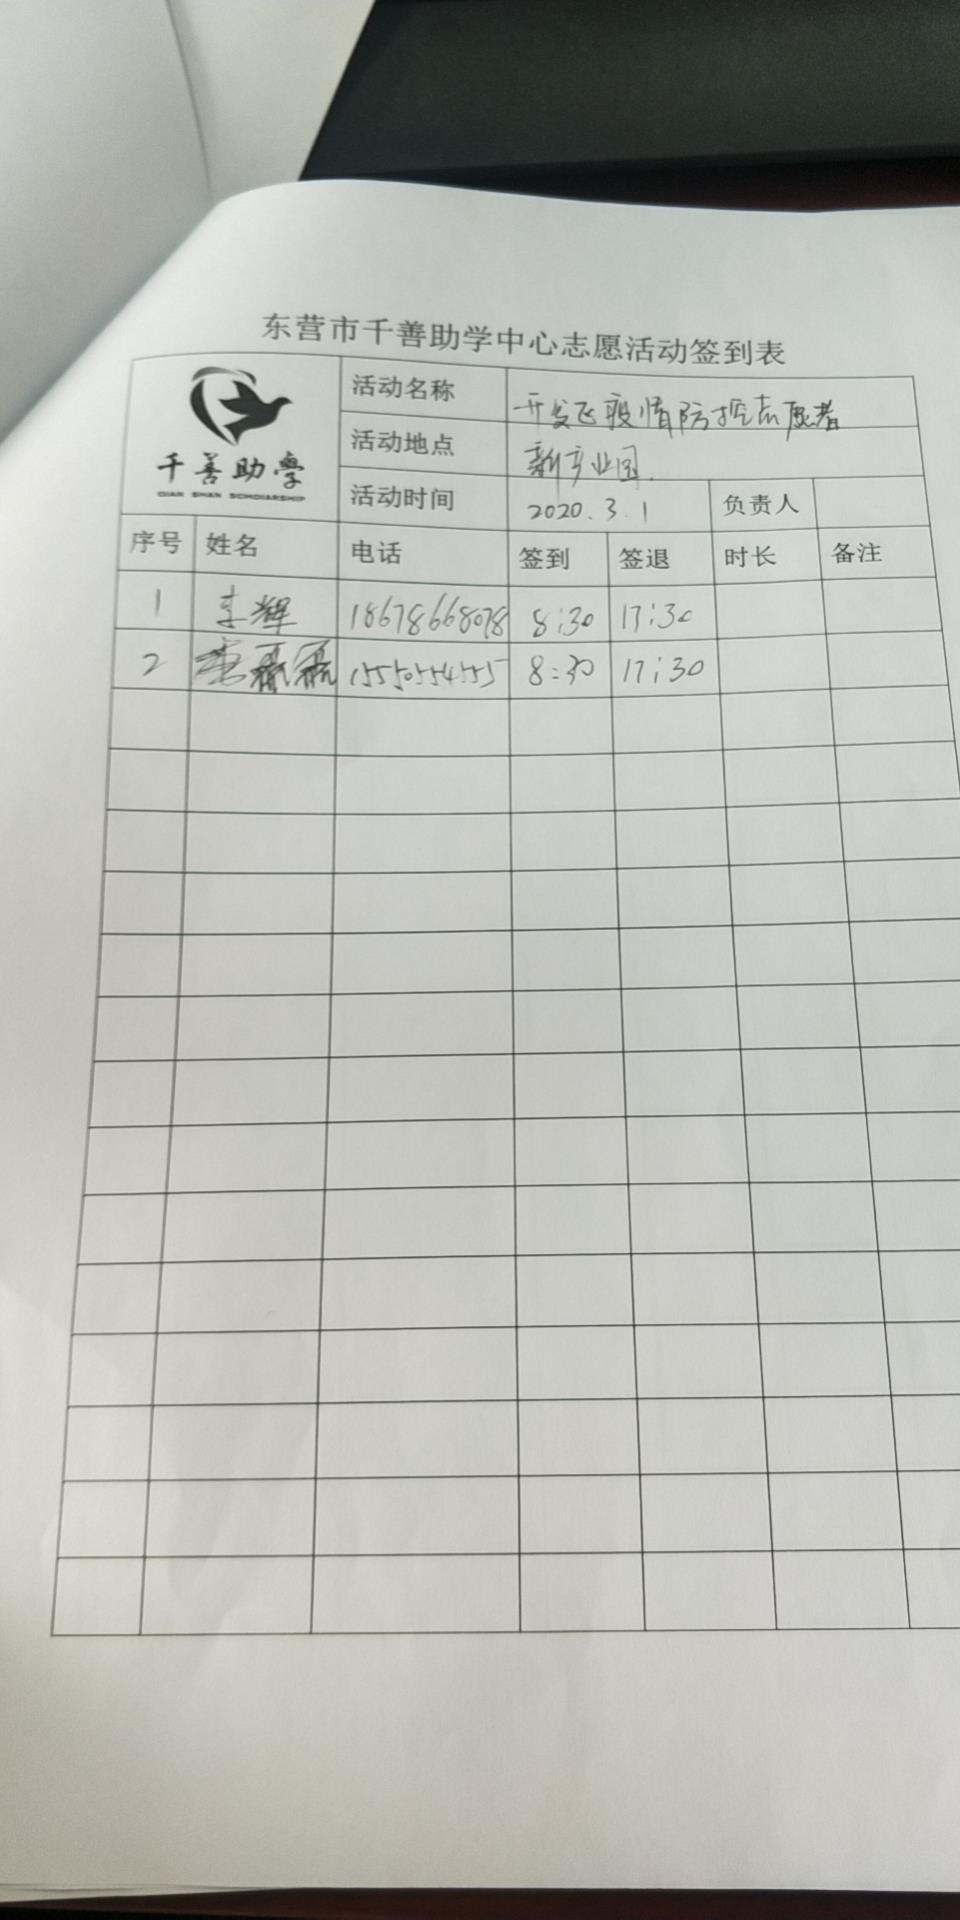 东营市千善助学中心志愿活动签到表
千善助学
QIAN SHAN SCHOLARSHIP
活动名称 开发区疫情防控志愿者
活动地点 新产业园
活动时间 2020.3.1 负责人
序号 姓名 电话 签到 签退 时长 备注
1 李辉 18678668078 8:30 17:30
2 15550554555 8:30 17:30